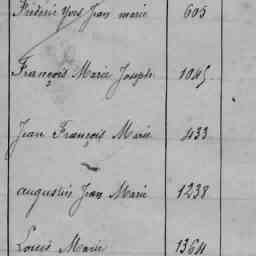 Frédéric Yves Jean marie 605
François Marie Joseph 1045
Jean François Marie 433
augustin Jean Marie 1238
Louis Marie 1364